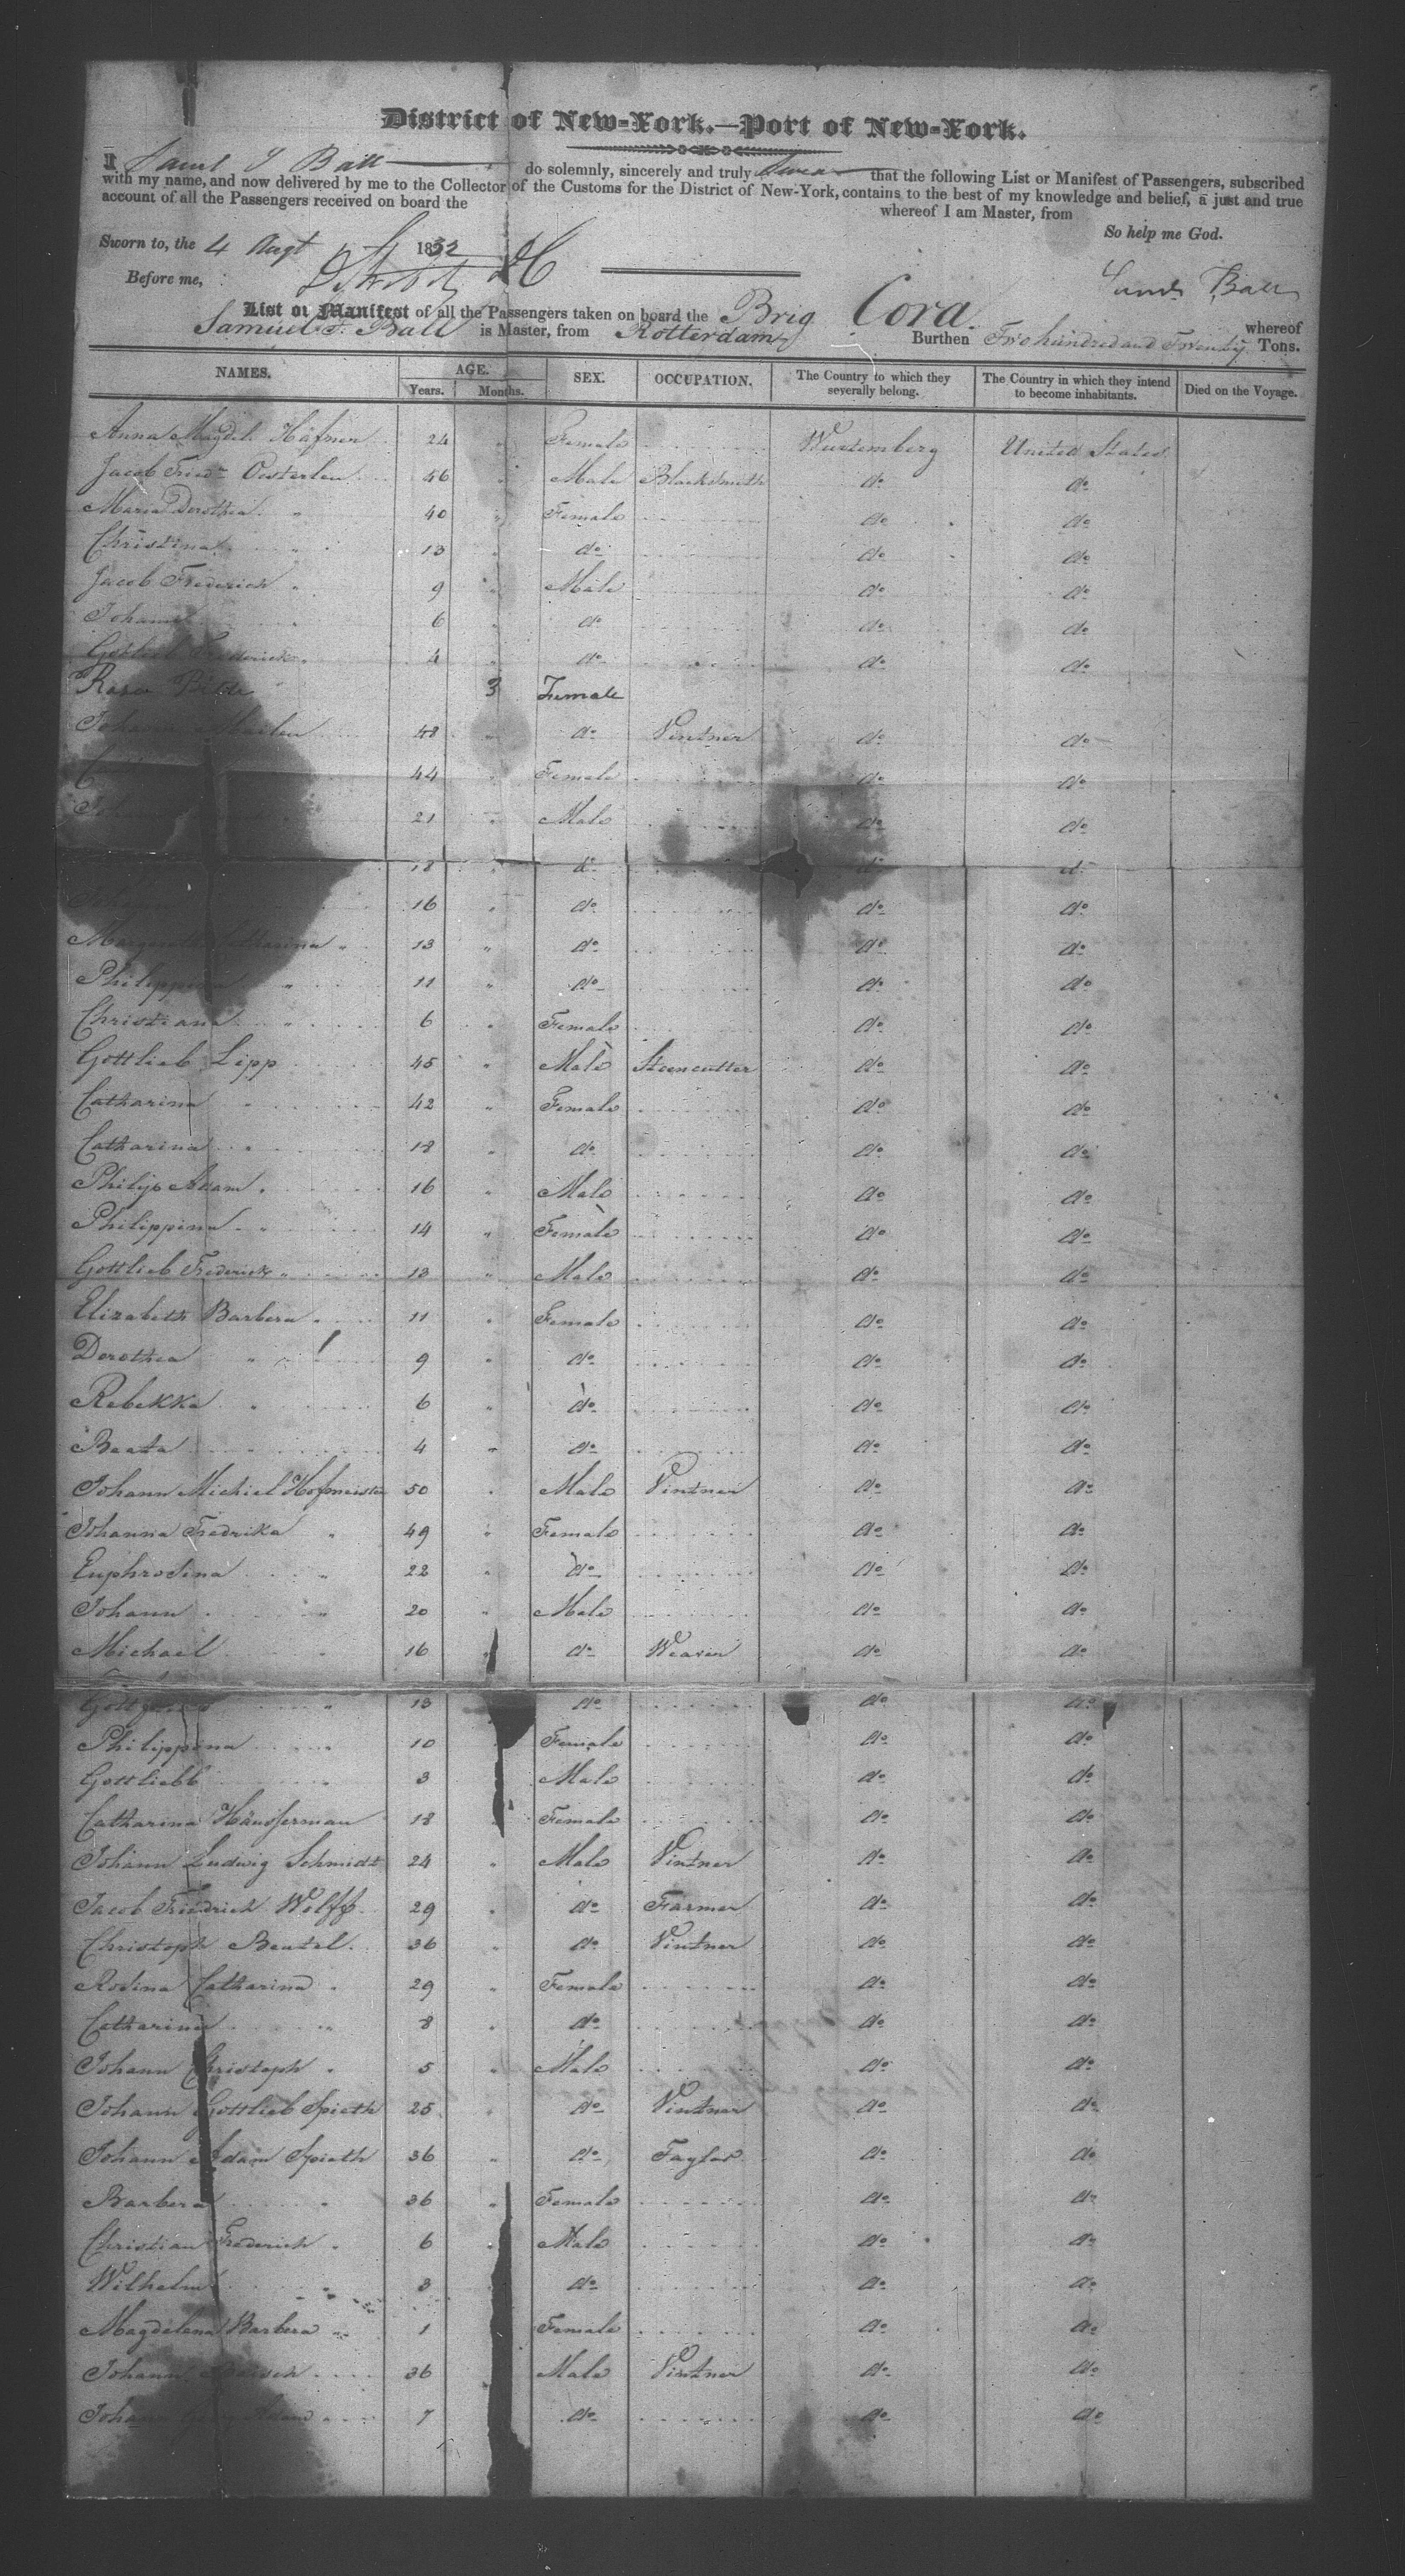 District of New-York.—Port of New-York.
I Saml T Ball do solemnly, sincerely and truly Swear that the following List or Manifest of Passengers, subscribed
with my name, and now delivered by me to the Collector of the Customs for the District of New-York, contains to the best of my knowledge and belief, a just and true
account of all the Passengers received on board the whereof I am Master, from
Sworn to, the 4 Augt 1832 So help me God.
Before me, Saml Ball
List or Manifest of all the Passengers taken on board the Brig Cora. whereof
Samuel T. Ball is Master, from Rotterdam Burthen Two hundred and Twenty Tons.
NAMES. AGE. SEX. OCCUPATION. The Country to which they severally belong. The Country in which they intend to become inhabitants. Died on the Voyage.
Years. Months.
Anna Magdl. Häfner 24 " Female Wurtemberg United States
Jacob Fried Oesterlen 46 " Male Blacksmith do do
Maria Dorothea " 40 " Female do do
Christina " 13 " do do do
Jacob Frederich " 9 " Male do do
Johannes " 6 " do do do
Gottlieb Frederick " 4 " do do do
Rosa 3 Female
Johann 48 " do Vintner do do
44 " Female do do
Johann 21 " Male do do
18 " do do do
Johann 16 " do do do
Margaretha Catharina " 13 " do do do
Philippina " 11 " do do do
Christiana " 6 " Female do do
Gottlieb Lipp 45 " Male Steencutter do do
Catharina " 42 " Female do do
Catharina " 18 " do do do
Philip Adam " 16 " Male do do
Philippina " 14 " Female do do
Gottlieb Frederick " 13 " Male do do
Elizabeth Barbera " 11 " Female do do
Dorothea " 9 " do do do
Rebekka " 6 " do do do
Beata " 4 " do do do
Johann Michiel Hofmeister 50 " Male Vintner do do
Johanna Fredrika " 49 " Female do do
Euphrosina " 22 " do do do
Johann " 20 " Male do do
Michael " 16 " do Weaver do do
" 13 do do do
Philippina " 10 " Female do do
Gottliebb " 3 Male do do
Catharina Häusserman 18 Female do do
Johann Ludwig Schmidt 24 " Male Vintner do do
Jacob Friedrich Wolff 29 " do Farmer do do
Christoph Beutel. 36 " do Vintner do do
Rosina Catharina " 29 " Female do do
Catharina " 8 " do do do
Johann Christoph " 5 " Male do do
Johann Gottlieb Spieth 25 " do Vintner do do
Johann Adam Spieth 36 " do Taylor do do
Barbera " 36 " Female do do
Christian Frederich " 6 " Male do do
Wilhelm " 3 do do do
Magdelena Barbera " 1 Female do do
Johann 36 Male Vintner do do
Johann Adam " 7 do do do